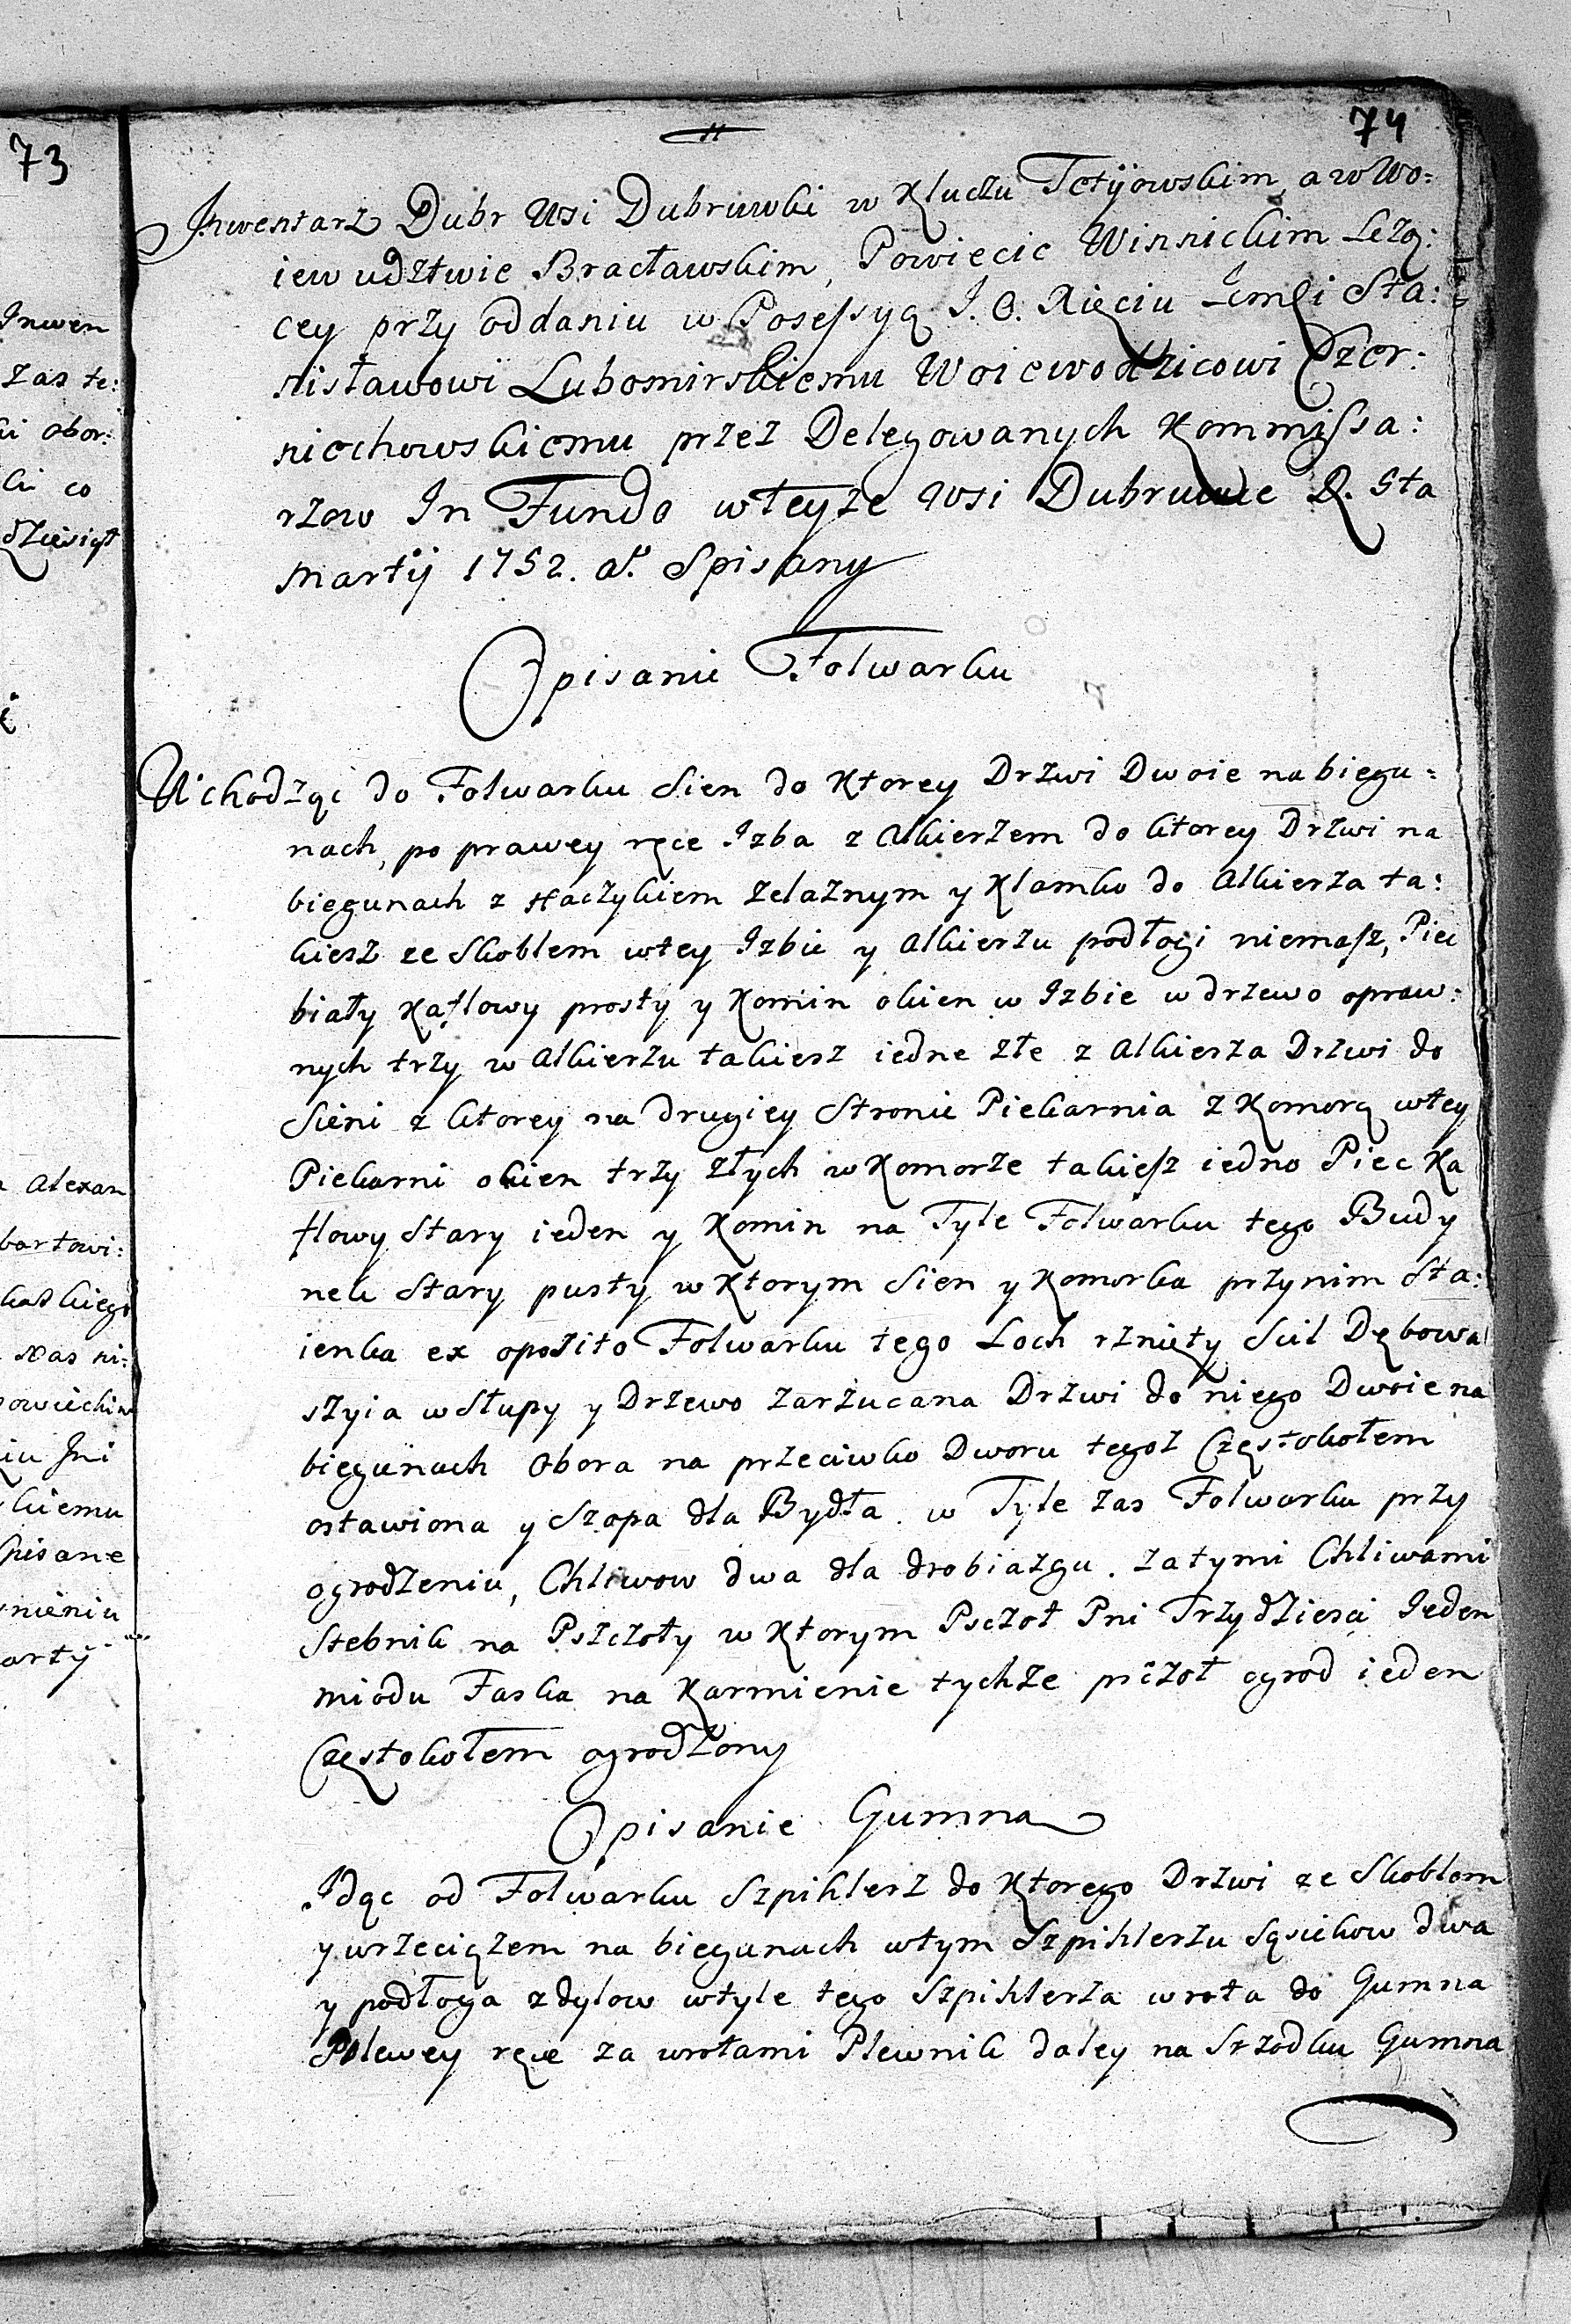 73
Inwen
zas te:
ki obor:
ki co
dziesięt
Alexan
bartowi:
kaskiego
nas ni:
Jni
kiemu
spisane
nieniu
arty
74
Inwentarz Dubr Wsi Dubruwki w Kluczu Tetyiowskim, a w Wo:
iewudztwie Bracławskim, Powiecie Winnickim Leżą:
cey przy oddaniu w Possessyą J. O. Xięciu Jmści Sta:
nisławowi Lubomirskiemu Woiewodzicowi Czer:
niechowskiemu przez Delegowanych Kommissa:
rzow In Fundo wteyze Wsi Dubruwce D. 5ta
Martij 1752. aº. Spisany
Opisanie Folwarku
Wchodząc do Folwarku Sien do Ktorey Drzwi Dwoie na biegu:
nach, po prawey ręce Izba z Alkierzem do ktorey Drzwi na
biegunach z Haczykiem Zelaznym y Klamko do Alkierza ta:
kiesz ze Skoblem wtey Izbie y Alkierzu podłogi niemasz, Piec
biały Kaflowy prosty y Komin okien w Izbie w drzewo opraw:
nych trzy w Alkierzu takiesz iedne złe z Alkierza Drzwi do
Sieni z ktorey na drugiey Stronie Piekarnia z Komorą wtey
Piekarni okien trzy złych w Komorze takiesz iedno Piec Ka
flowy Stary ieden y Komin na Tyle Folwarku tego Budy
nek Stary pusty w Ktorym Sien y Komorka przynim Sta:
ienka ex oposito Folwarku tego Loch rznięty Scil Dębowa
szyia w Słupy y Drzewo zarzucana Drzwi do niego Dwoie na
biegunach Obora na przeciwko Dworu tegoz Częstokołem
ostawiona y Szopa dla Bydła. w Tyle zas Folwarku przy
ogrodzeniu, Chliwow dwa dla drobiazgu. zatymi Chliwami
Stebnik na Pszczoły w Ktorym Psczoł Pni Trzydziesci Ieden
miodu Faska na Karmienie tychze pszoł ogrod ieden
Częstokołem ogrodzony
Opisanie Gumna
Idąc od Folwarku Szpihlerz do Ktorego Drzwi ze Skoblem
y wrzeciązem na biegunach wtym Szpihlerzu Sąsiekow dwa
y podłoga zdylow wtyle tego Szpihlerza wrota do Gumna
Polewey ręce za wrotami Plewnik daley na Srzodku Gumna